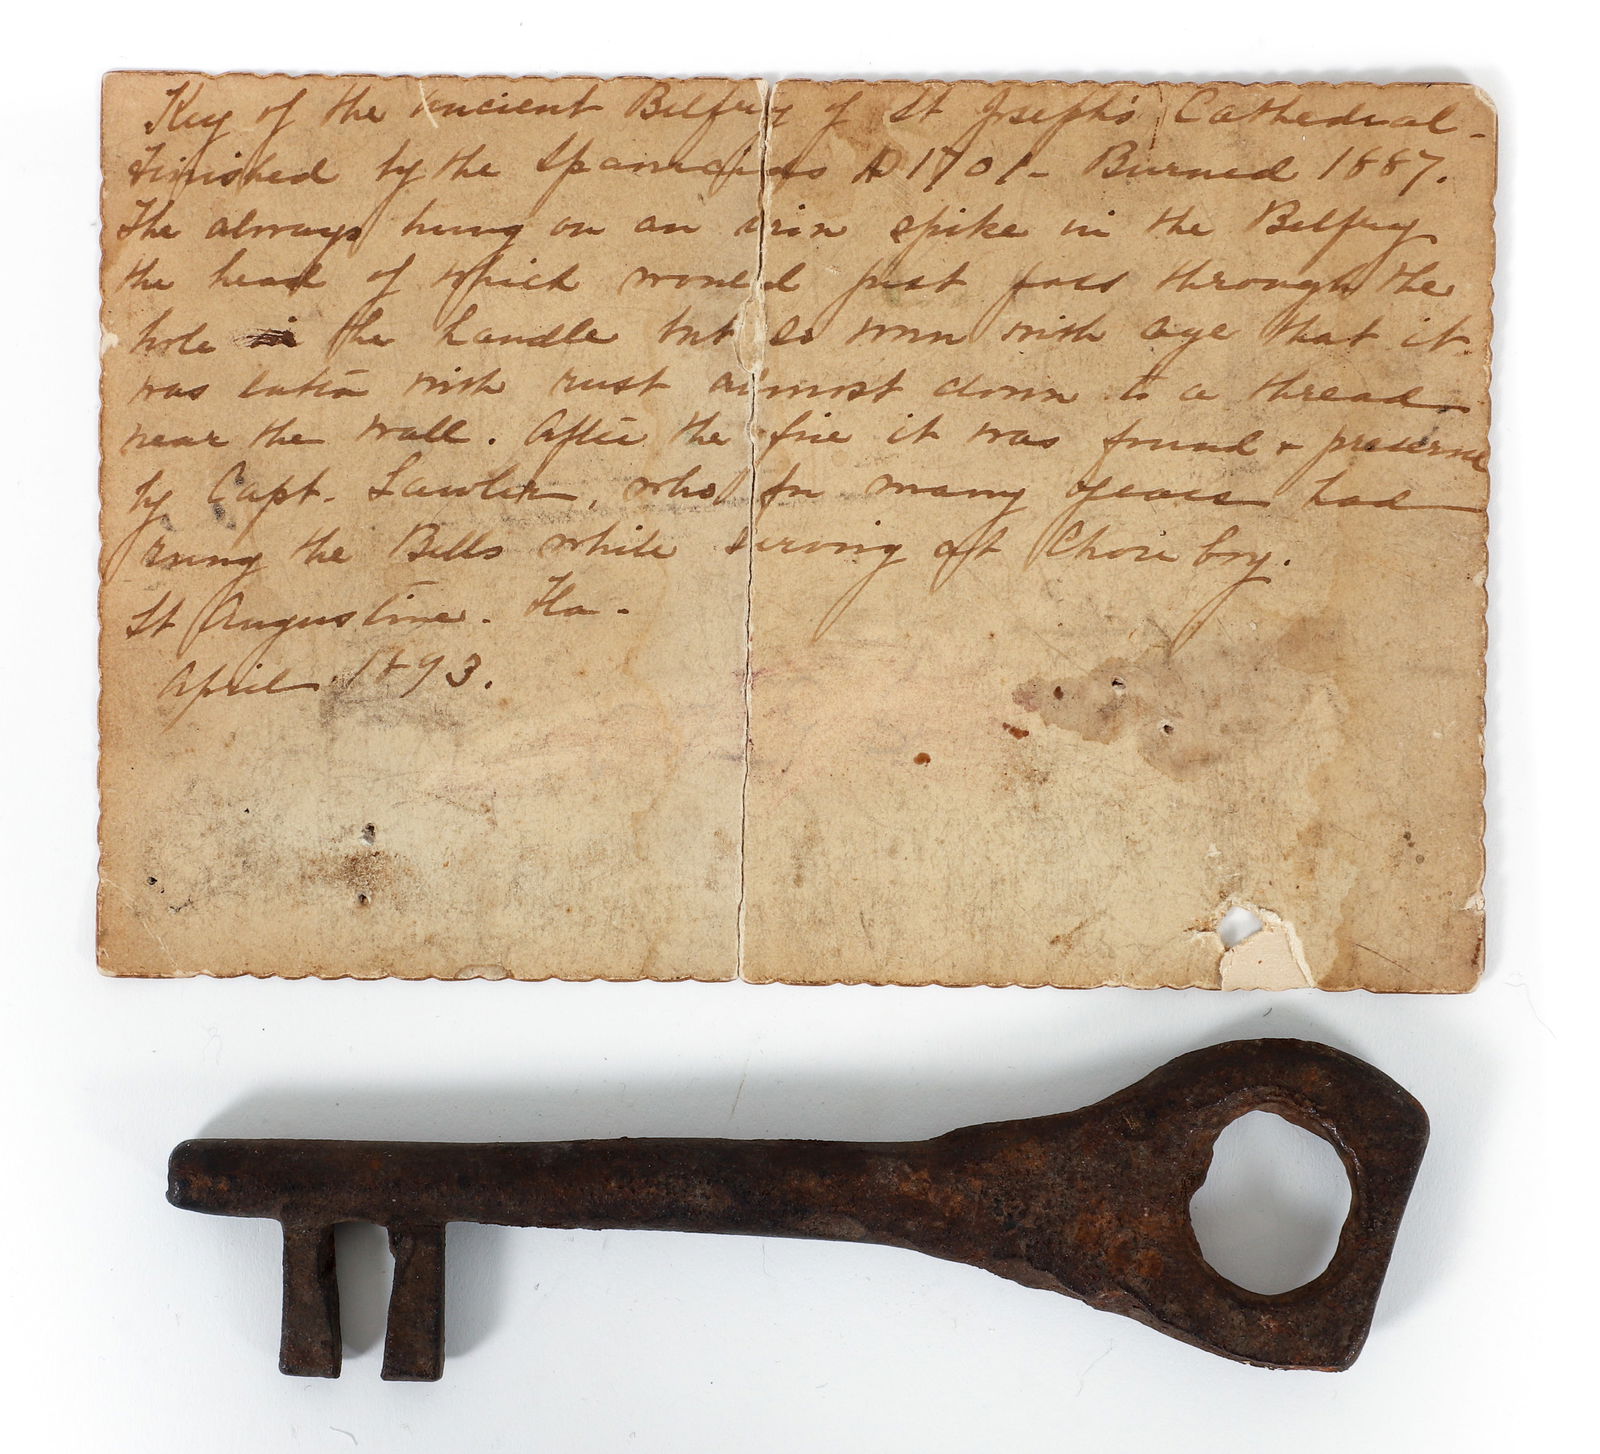 Key of the ancient Belfry of St Joseph's Cathedral -
Finished by the Spaniards AD 1701 - Burned 1887.
The always hung on an iron spike in the Belfry
the head of which would just pass through the
hole in the handle but so worn with age that it
was eaten with rust almost down to a thread
near the wall. After the fire it was found + preserve
by Capt. Lawler, who for many years had
rung the Bells while serving at Choir boy.
St Augustine. Fla.
April 1893.